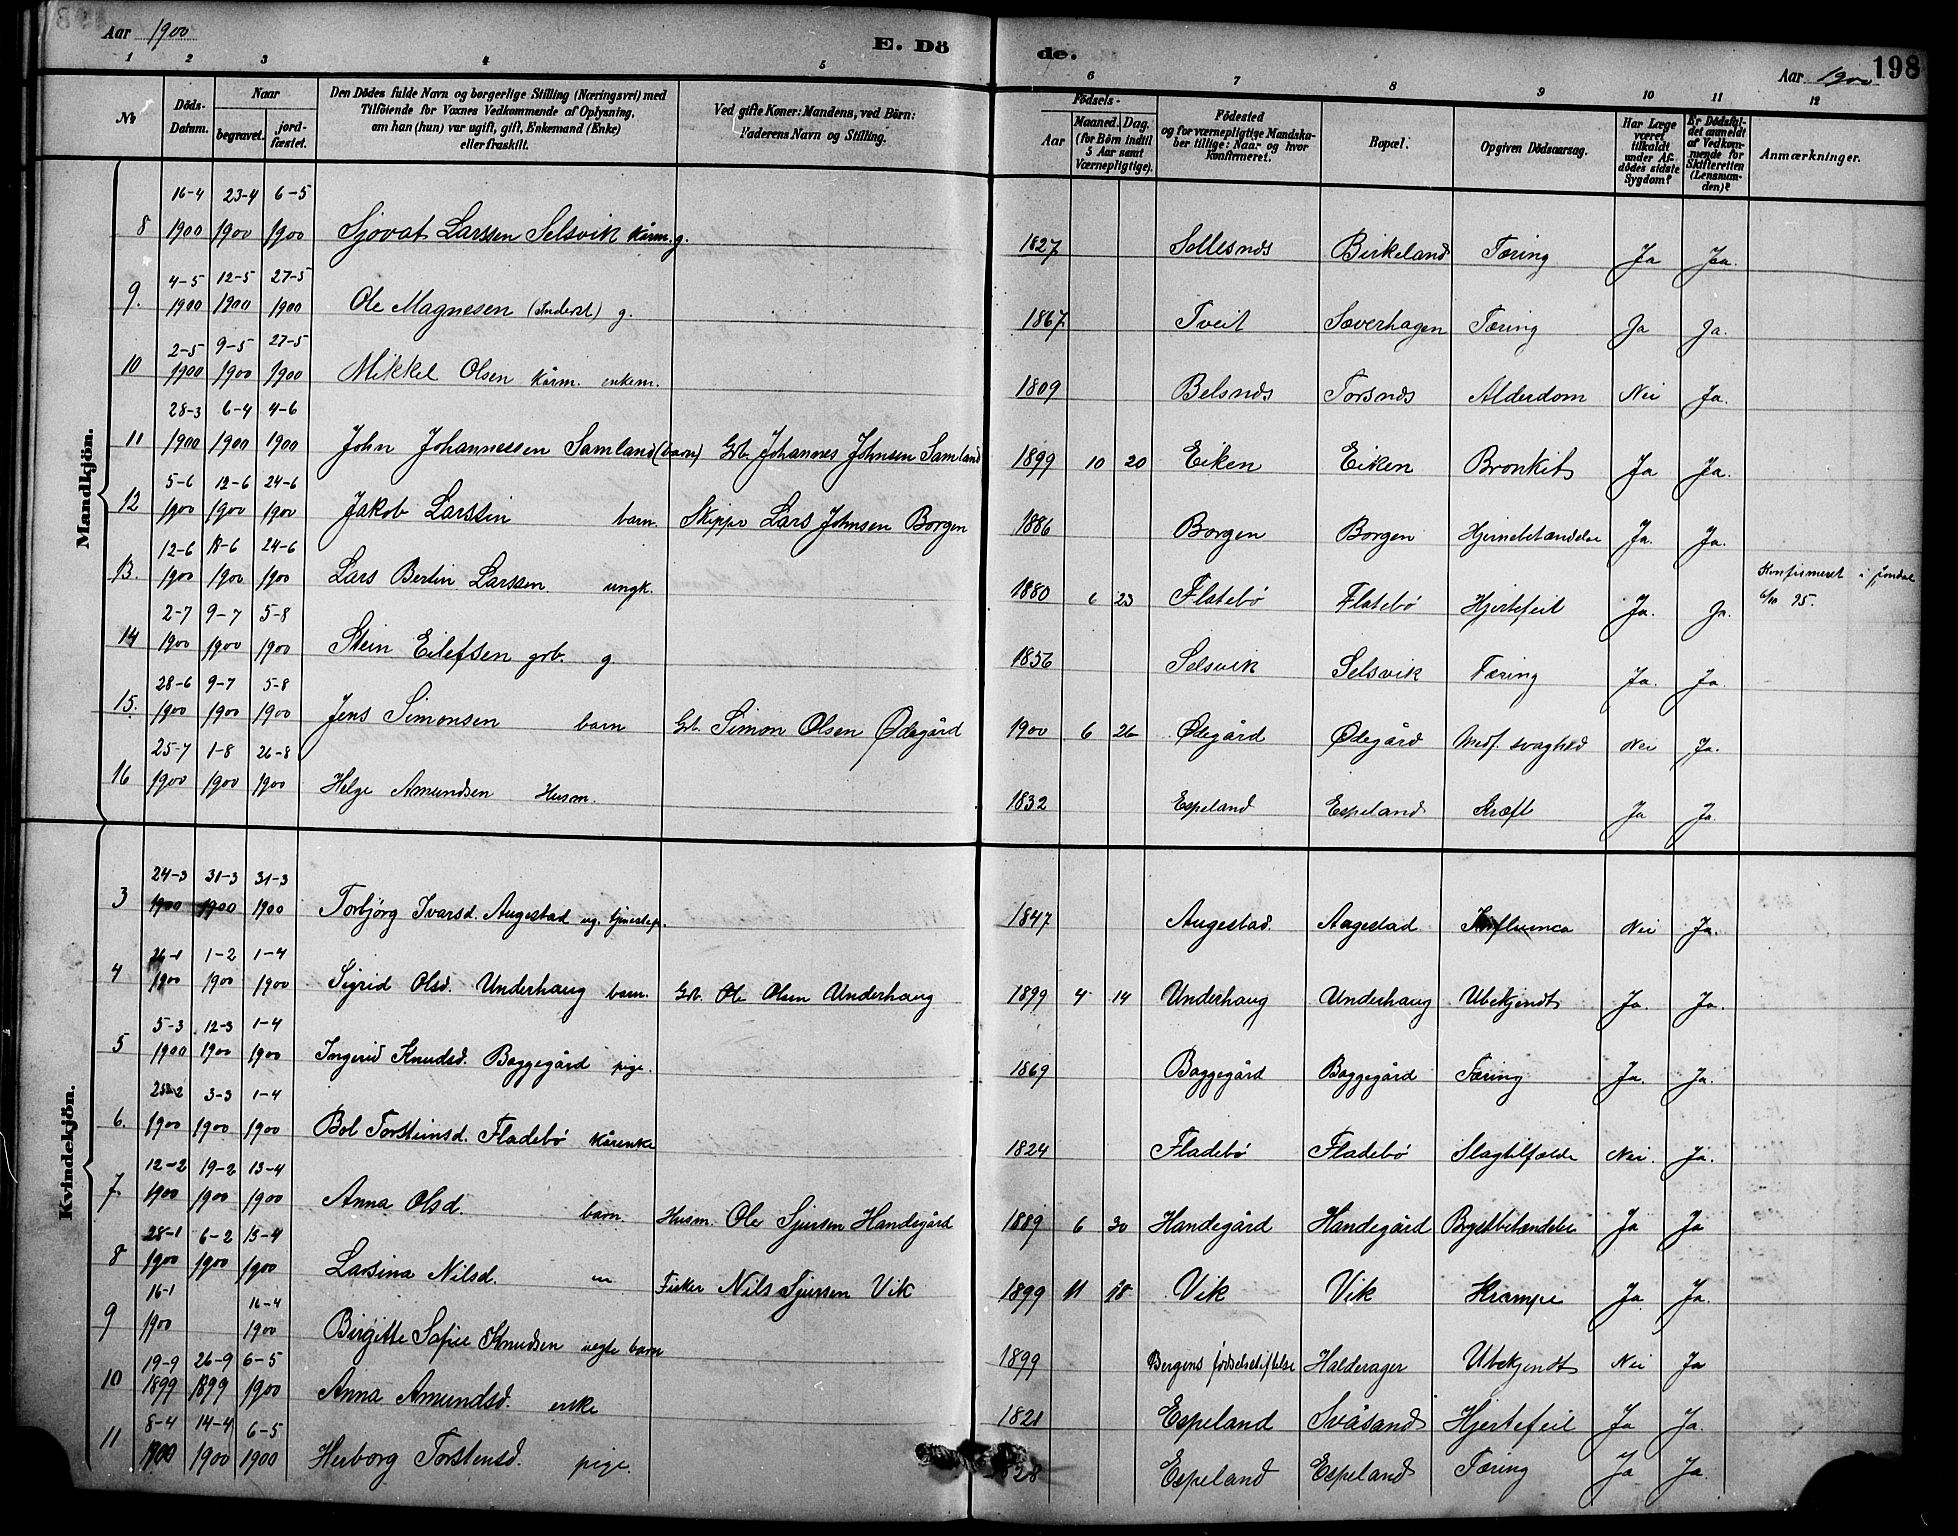 Aar 1900
E. Dö
de.
Aar 1900
198
1 2 3 4 5 6 7 8 9 10 11 12
No
Döds-Datum.
Naar
begravet.
jord-fæstet.
Den Dödes fulde Navn og borgerlige Stilling (Næringsvei) med
Tilföiende for Voxnes Vedkommende af Oplysning,
om han (hun) var ugift, gift, Enkemand (Enke)
eller fraskilt.
Ved gifte Koner: Mandens, ved Börn:
Faderens Navn og Stilling.
Födsels-
Aar
Maaned. Dag.
(for Börn indtil
5 Aar samt
Værnepligtige).
Födested
og for værnepligtige Mandska-
ber tillige: Naar og hvor
konfirmeret.
Bopæl.
Opgiven Dödsaarsag.
Har Læge
været
tilkaldt
under Af-
dödes sidste
Sygdom?
Er Dödsfal-
det anmeldt
af Vedkom-
mende for
Skifteretten
(Lensman-
den)?
Anmærkninger.
Mandkjön.
8 16-4 1900 23-4 1900 6-5 1900 Sjovat Larssen Selsvik kårm. g. 1827 Sollesnes Birkeland Tæring Ja Ja.
9. 4-5 1900 12-5 1900 27-5 1900 Ole Magnesen (Inderst) g. 1867 Tveit Sæverhagen Tæring Ja Ja.
10 2-5 1900 9-5 1900 27-5 1900 Mikkel Olsen kårm. enkem. 1809 Belsnes Torsnes Alderdom Nei Ja.
11 28-3 1900 6-4 1900 4-6 1900 John Johannessen Samland (barn) Grb. Johannes Johnsen Samland 1899 10 20 Eiken Eiken Bronkit Ja Ja.
12 5-6 1900 12-6 1900 24-6 1900 Jakob Larssen barn. Skipper Lars Johnsen Borgen 1886 Borgen Borgen Hjernebetændelse Ja. Ja.
13. 12-6 1900 18-6 1900 24-6 1900 Lars Bertin Larssen. ungk. 1880 6 23 Flatebø Flatebø Hjertefeil Ja. Ja. Konfirmeret i Jondal 6/10 95.
14 2-7 1900 9-7 1900 5-8 1900 Stein Eilefsen grb. g 1856 Selsvik Selsvik Tæring Ja. Ja.
15. 28-6 1900 9-7 1900 5-8 1900 Jens Simonsen barn Grb. Simon Olsen Ødegård 1900 6 26 Ødegård Ødegård Medf. svaghed Nei Ja.
16 25-7 1900 1-8 1900 26-8 1900 Helge Amundsen Husm. 1832 Espeland Espeland Kræft Ja Ja.
Kvindekjön.
3 24-3 1900 31-3 1900 31-3 1900 Torbjörg Ivarsd. Augestad ug. 1847 Augestad. Augestad Influenca Nei Ja.
4 26-1 1900 1-2 1900 1-4 1900 Sigrid Olsd. Underhaug barn. Grb. Ole Olsen Underhaug 1899 4 14 Underhaug Underhaug Ubekjendt Ja. Ja.
5 5-3 1900 12-3 1900 1-4 1900 Ingerid Knudsd. Baggegård pige. 1869 Baggegård Baggegård Tæring Ja. Ja.
6. 1900 3-3 1900 1-4 1900 Bol Torsteinsd. Fladebø kårenke 1824 Fladebø Fladebø Slagtilfælde Nei. Ja.
7. 12-2 1900 19-2 1900 13-4 1900 Anna Olsd. barn. Husm. Ole Sjursen Handegård 1889 6 30 Handegård Handegård Brystbetændelse Ja Ja
8 28-1 1900 6-2 1900 15-4 1900 Larsina Nilsd. " Fisker Nils Sjursen Vik 1899 11 18 Vik Vik Krampe Ja Ja.
9 16-1 1900 16-4 1900 Birgitte Sofie Knudsen uegte barn 1899 Bergens fødselsstiftelse Halderager Ubekjendt Nei Ja
10 19-9 1899 26-9 1899 6-5 1900 Anna Amundsd. enke 1821 Espeland Svåsand Hjertefeil Ja Ja.
11 8-4 1900 14-4 1900 6-5 1900 Herborg Torstensd. pige. 28 Espeland Espeland Tæring Ja Ja.